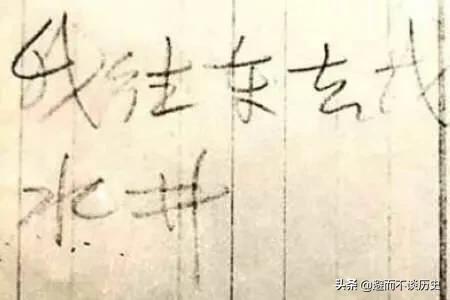 我往东去找
水井
头条 @而不谈历史